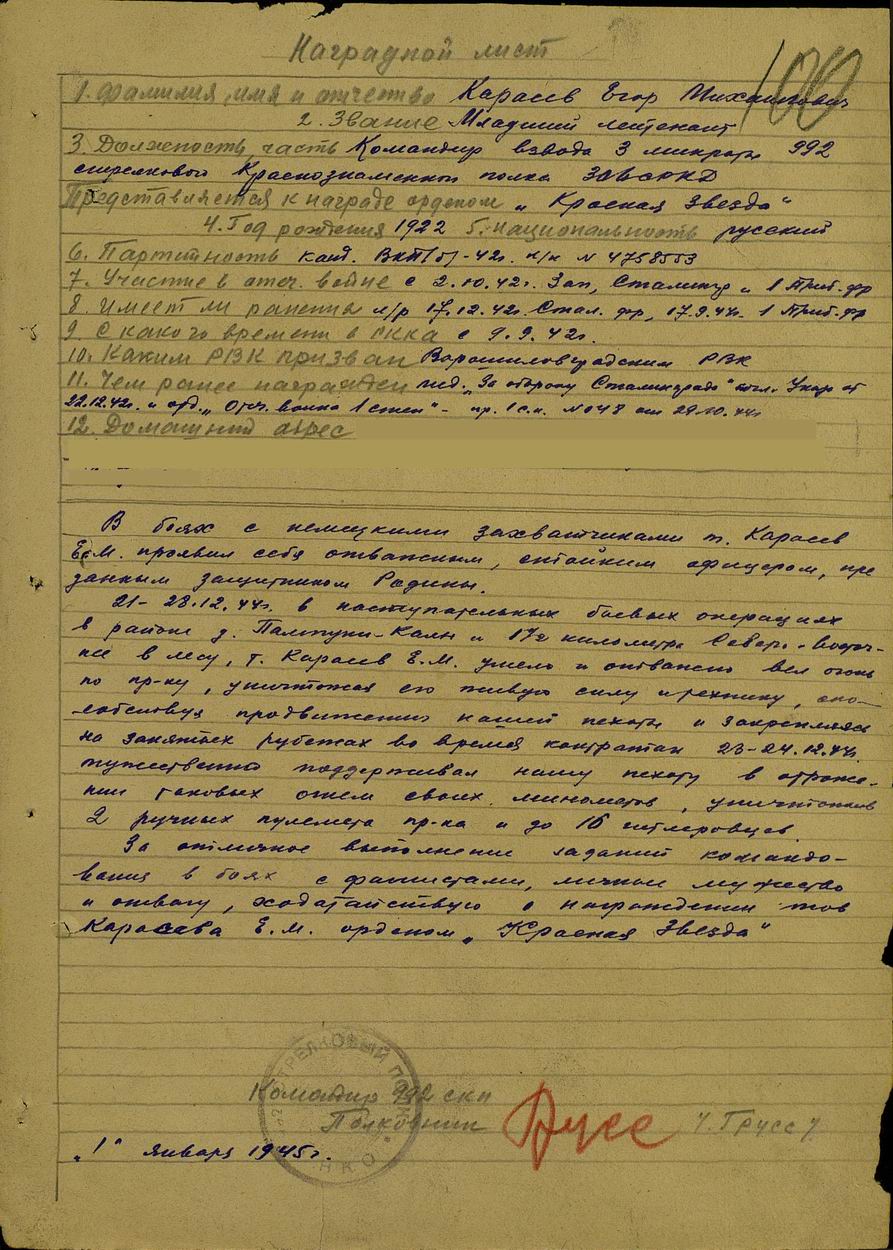 Наградной лист
100
1. Фамилия, имя и отчество Карасев Егор Михайлович
2. Звание Младший лейтенант
3. Должность, часть Командир взвода 3 минроты 992
стрелкового Краснознаменного полка
Представляется к награде орденом „Красная Звезда"
4. Год рождения 1922 5. Национальность русский
6. Партийность канд. ВКП(б)-42г. п/к N 4758553
7. Участие в отеч. войне с 2.10.42г. Зап, Сталингр. и 1 Приб. фр
8. Имеет ли ранения л/р 17.12.42г. Стал. фр, 17.9.44г. 1 Приб. фр
9. С какого времени в РККА с 9.9.42г.
10. Каким РВК призван Ворошиловградским РВК
11. Чем ранее награжден мед. „За оборону Сталинграда" Указ от
22.12.42г. и орд. „Отеч. война 1 степ" - пр. 1 с.к. N 048 от 29.10.44г
12. Домашний адрес
В боях с немецкими захватчиками т. Карасев
Е.М. проявил себя отважным, стойким офицером, пре
данным защитником Родины.
21-28.12.44г. в наступательных боевых операциях
в районе д. Пампули-Калн и 1 1/2 километра Северо-Восточ-
нее в лесу, т. Карасев Е.М. умело и отважно вел огонь
по пр-ку, уничтожая его живую силу и технику, спо-
собствуя продвижению нашей пехоты и закрепляясь
на занятых рубежах во время контратак 23-24.12.44г.
мужественно поддерживал нашу пехоту в отраже-
нии таковых огнем своих минометов, уничтожив
2 ручных пулемета пр-ка и до 16 гитлеровцев.
За отличное выполнение заданий командо-
вания в боях с фашистами, личное мужество
и отвагу, ходатайствую о награждении тов
Карасева Е.М. орденом „Красная Звезда"
СТРЕЛКОВЫЙ ПОЛК
НКО
Командир 992 скп
Полковник Грусс / Грусс /
„1" января 1945г.